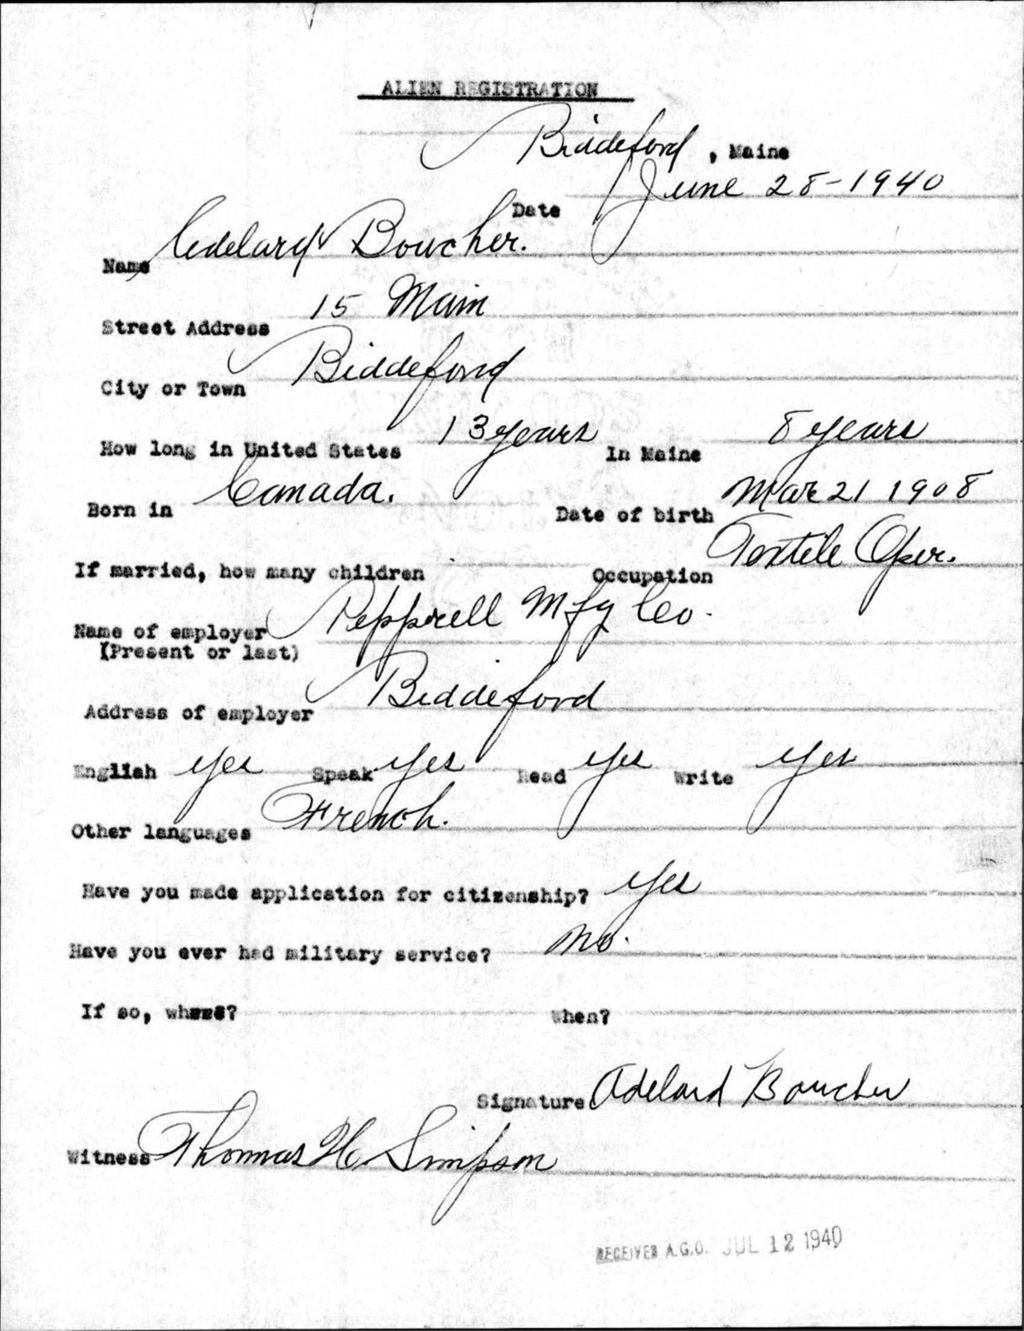 ALIEN REGISTRATION
Biddeford, Maine
Date June 28-1940
Name Adelard Boucher.
Street Address 15 Main
City or Town Biddeford
How long in United States 13 years In Maine 8 years
Born in Canada. Date of birth Mar 21 1908
If married, how many children Occupation Textile Oper.
Name of employer Pepperell Mfg Co.
(Present or last)
Address of employer Biddeford
English yes Speak yes Read yes Write yes
Other languages French.
Have you made application for citizenship? yes
Have you ever had military service? no.
If so, where? When?
Signature Adelard Boucher
Witness Thomas H. Simpson
RECEIVED A.G.O. JUL 12 1940